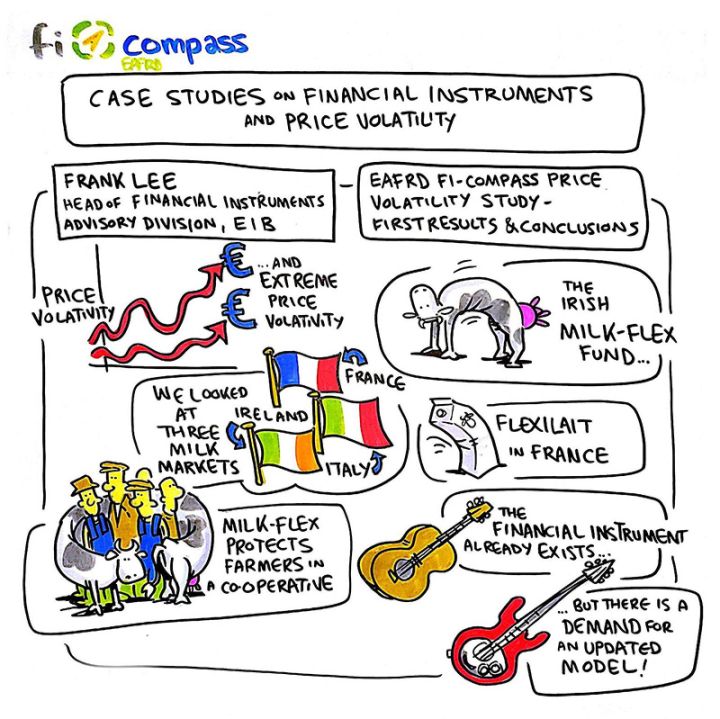 fi compass
EAFRD
CASE STUDIES ON FINANCIAL INSTRUMENTS
AND PRICE VOLATILITY
FRANK LEE
HEAD OF FINANCIAL INSTRUMENTS
ADVISORY DIVISION, EIB
EAFRD FI-COMPASS PRICE
VOLATILITY STUDY -
FIRST RESULTS & CONCLUSIONS
PRICE
VOLATIVITY
€
€
... AND
EXTREME
PRICE
VOLATIVITY
THE
IRISH
MILK-FLEX
FUND...
WE LOOKED
AT
THREE
MILK
MARKETS
FRANCE
IRELAND
ITALY
FLEXILAIT
IN FRANCE
MILK-FLEX
PROTECTS
FARMERS IN
A CO-OPERATIVE
THE
FINANCIAL INSTRUMENT
ALREADY EXISTS...
... BUT THERE IS A
DEMAND FOR
AN UPDATED
MODEL!